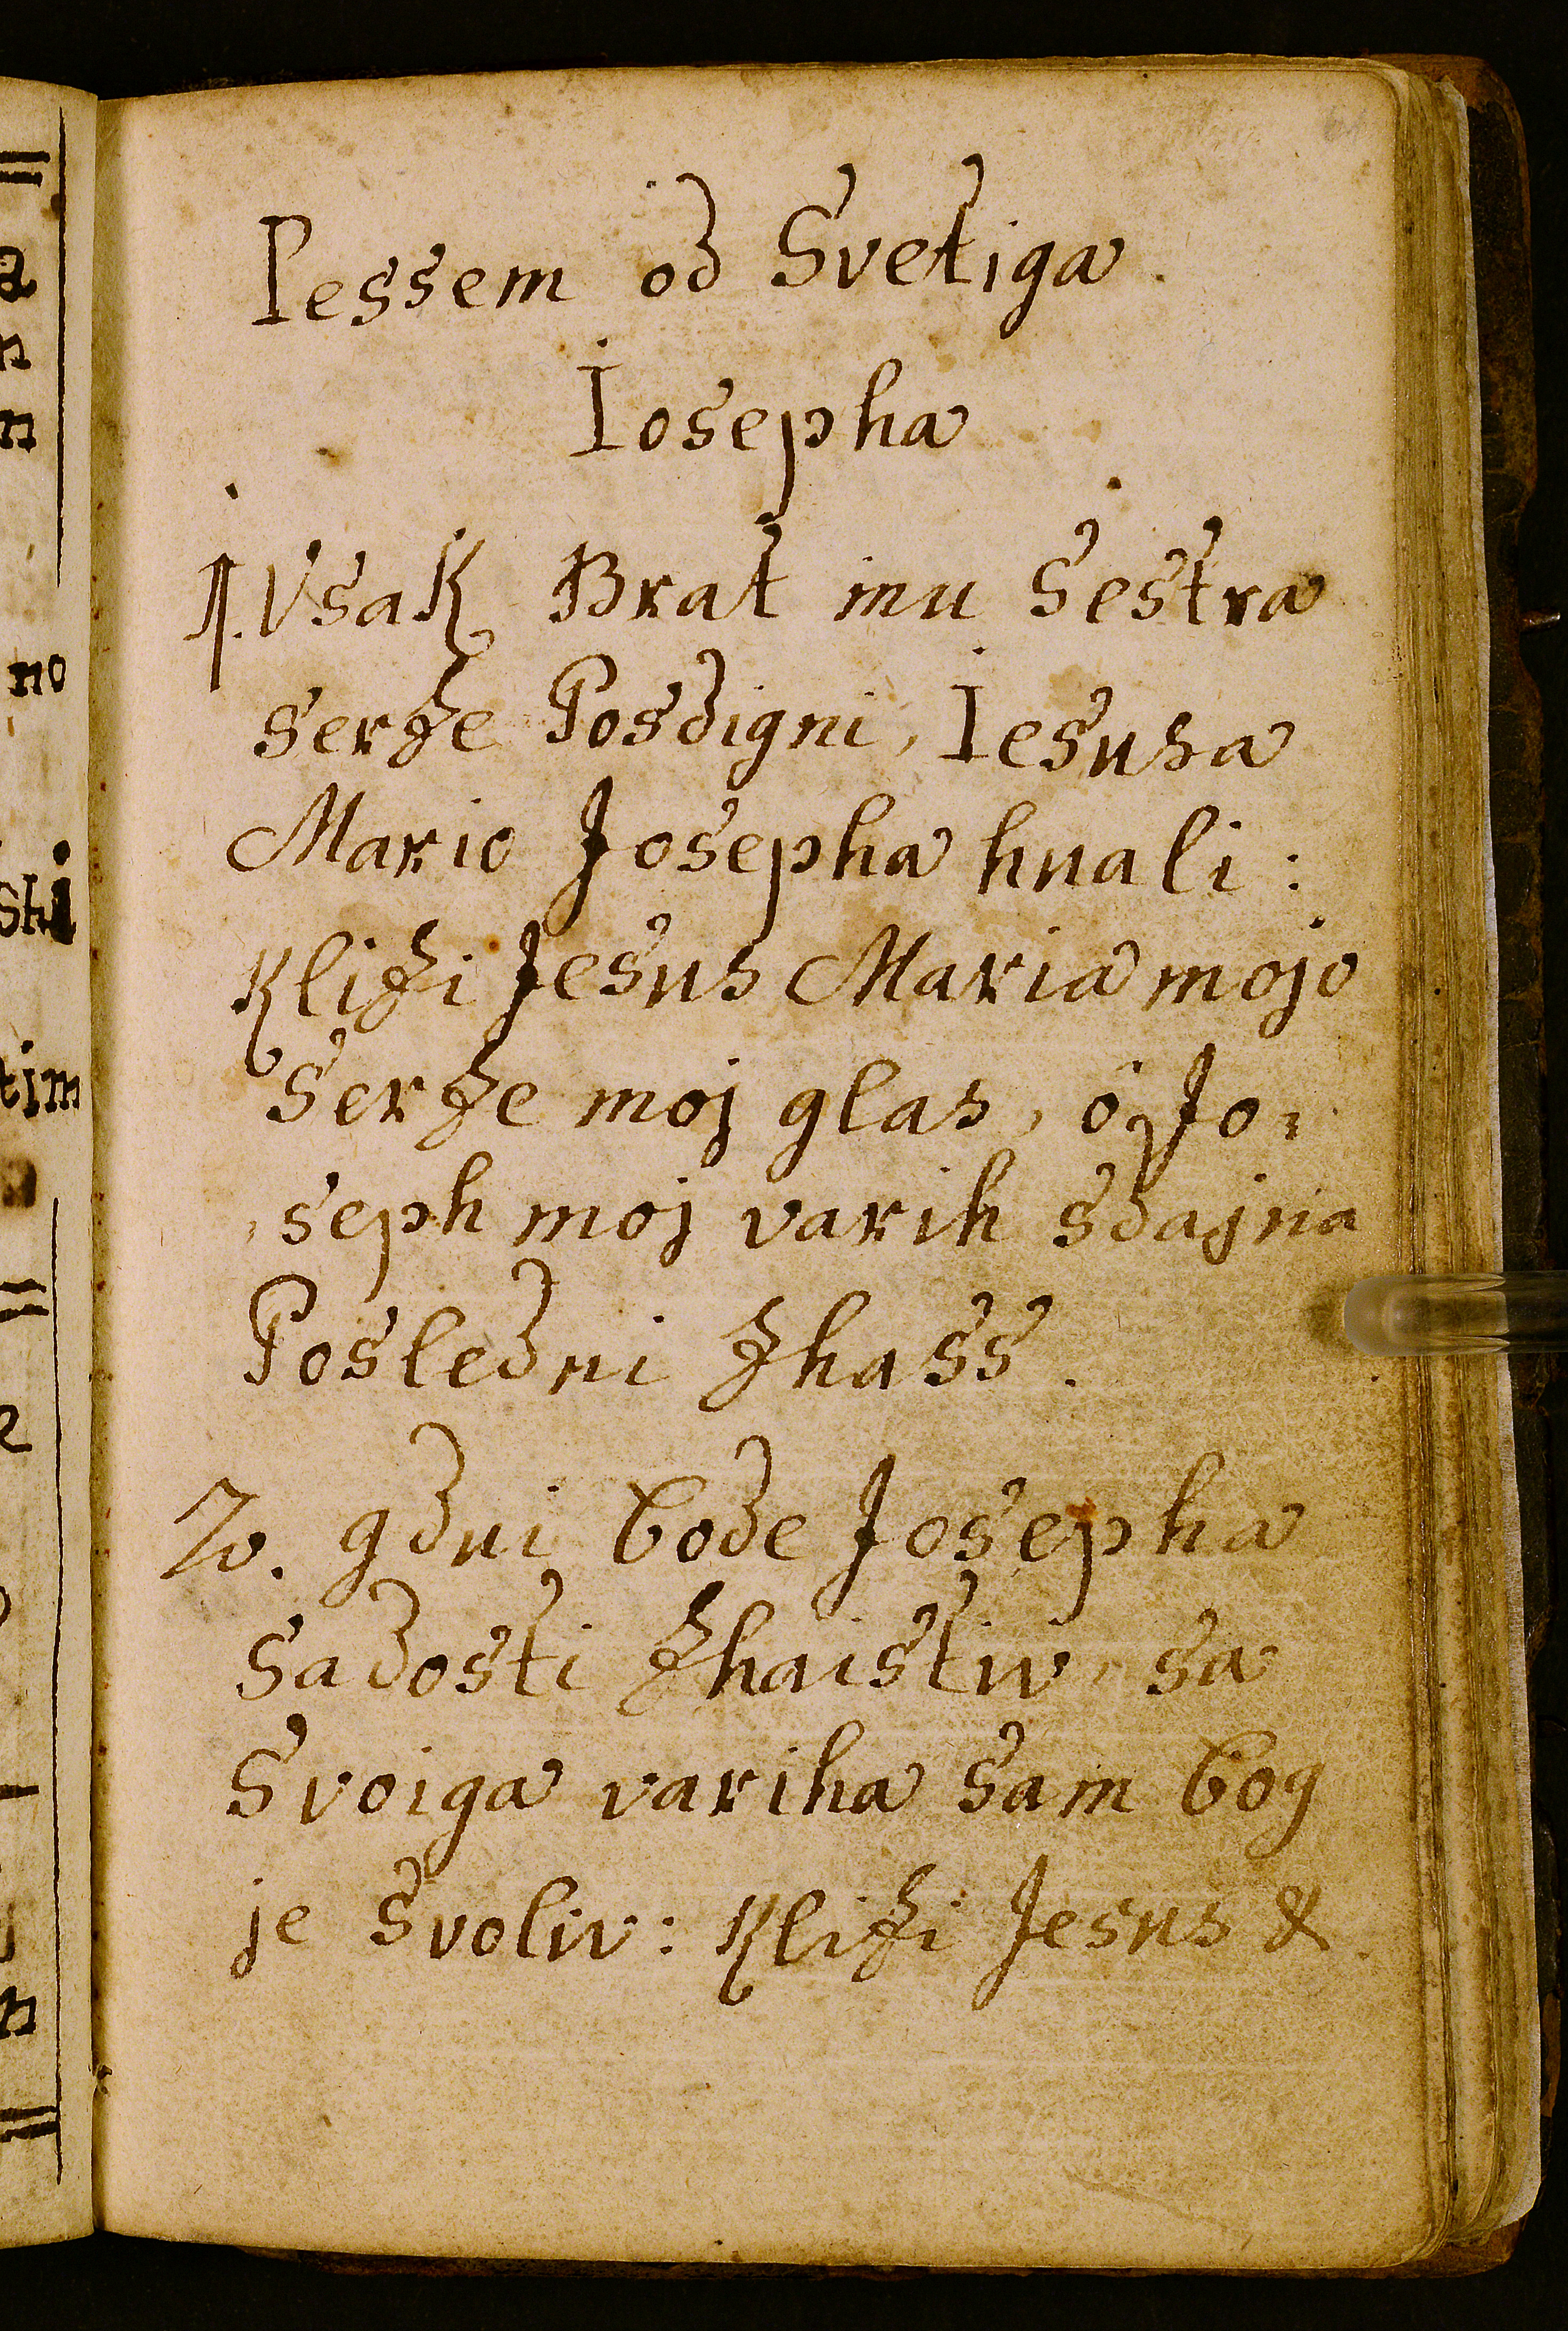 Pessem od Svetiga
Iosepha
1. Vsak Brat inu Sestra
serze Posdigni, Iesusa
Mario Josepha hnali:
Klizi Jesus Maria mojo
Serze moj glas, ô Jo=
=seph moj varih sdajna
Posledni zhass.
2. gdni bode Josepha
Sadosti zhaistiv, sa
Svoiga variha Sam bog
je svoliv: Klizi Jesus &.